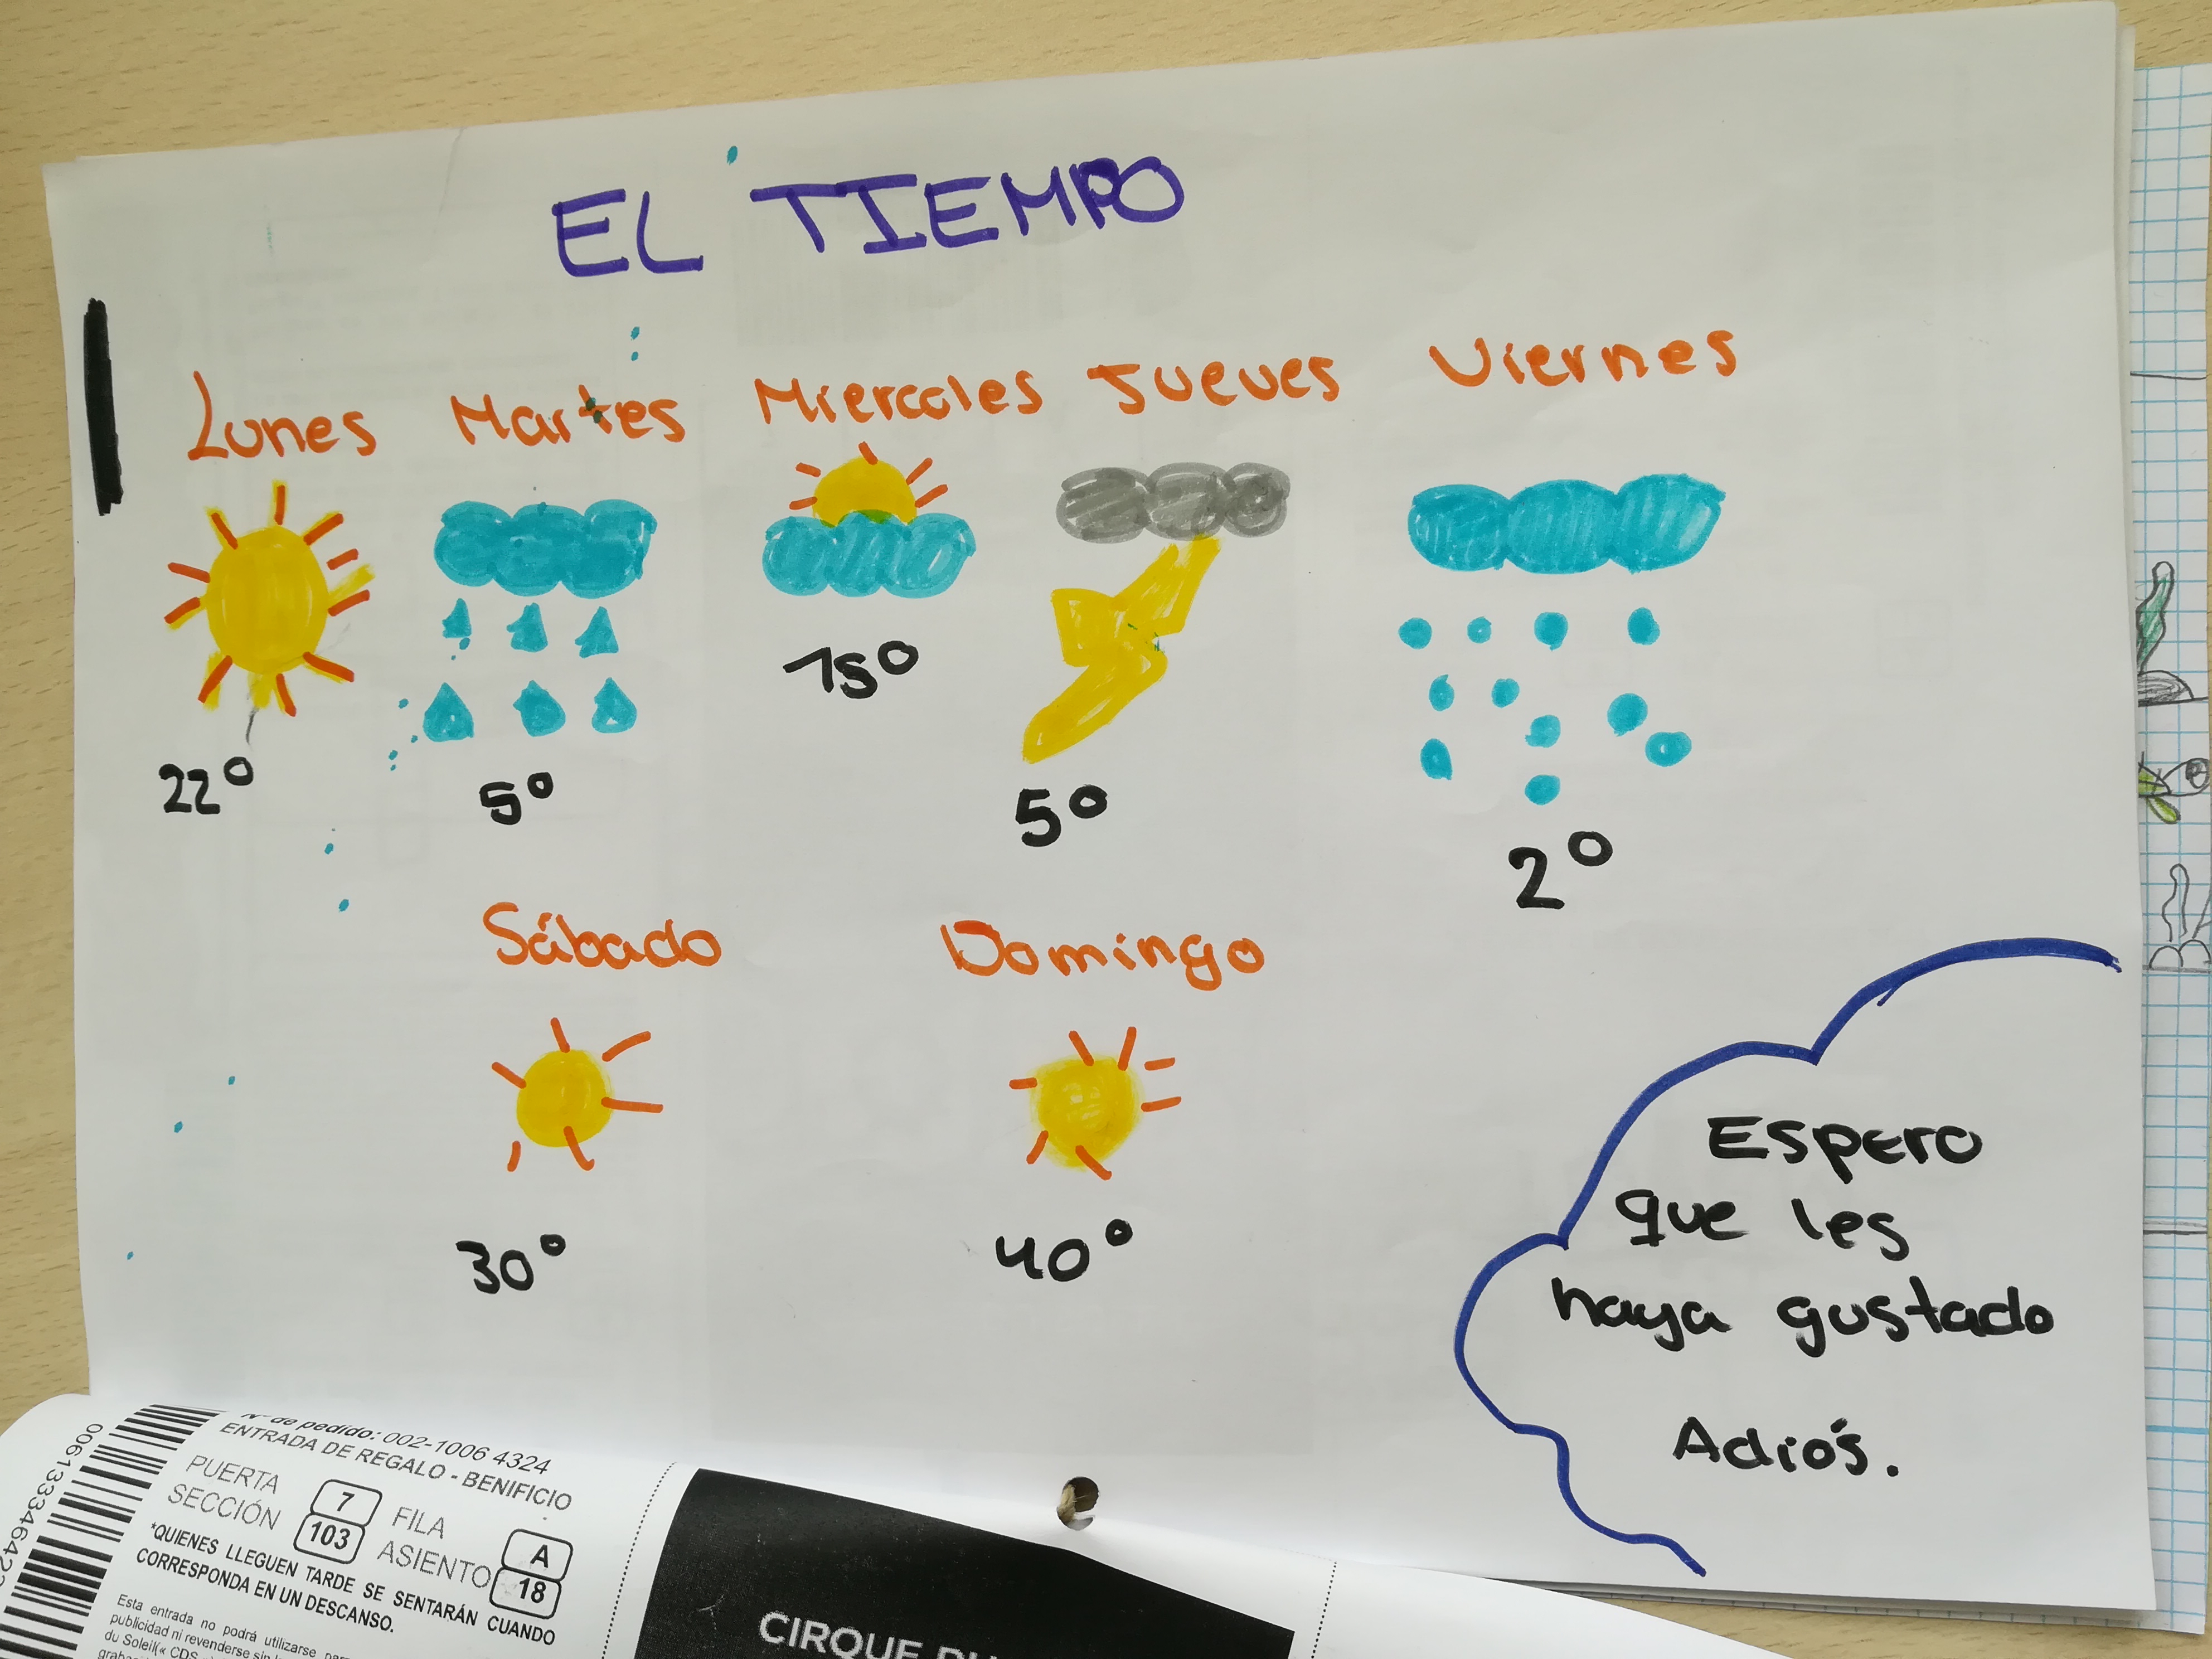 EL TIEMPO
Lunes Martes Miercoles Jueves Viernes
22º 5º 15º 5º 2º
Sábado Domingo
30º 40º
Espero
que les
haya gustado
Adiós.
Nº de pedido: 002-1006 4324
ENTRADA DE REGALO - BENIFICIO
PUERTA 7 FILA A
SECCIÓN 103 ASIENTO 18
*QUIENES LLEGUEN TARDE SE SENTARÁN CUANDO
CORRESPONDA EN UN DESCANSO.
Esta entrada no podrá utilizarse
publicidad ni revenderse sin
du Soleil(« CDS
CIRQUE